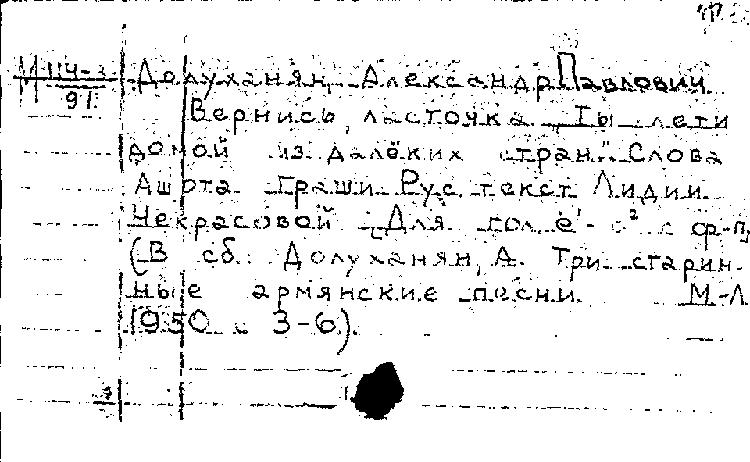 М 114-3
91
Долуханян, Александр Павлович
Вернись, ласточка. „Ты лети
домой из далёких стран". Слова
Ашота Граши. Рус. текст Лидии
Некрасовой. [Для гол. e¹-c² с ф-п.]
(В сб.: Долуханян, А. Три старин-
ные армянские песни. М-Л
1950 с 3-6).